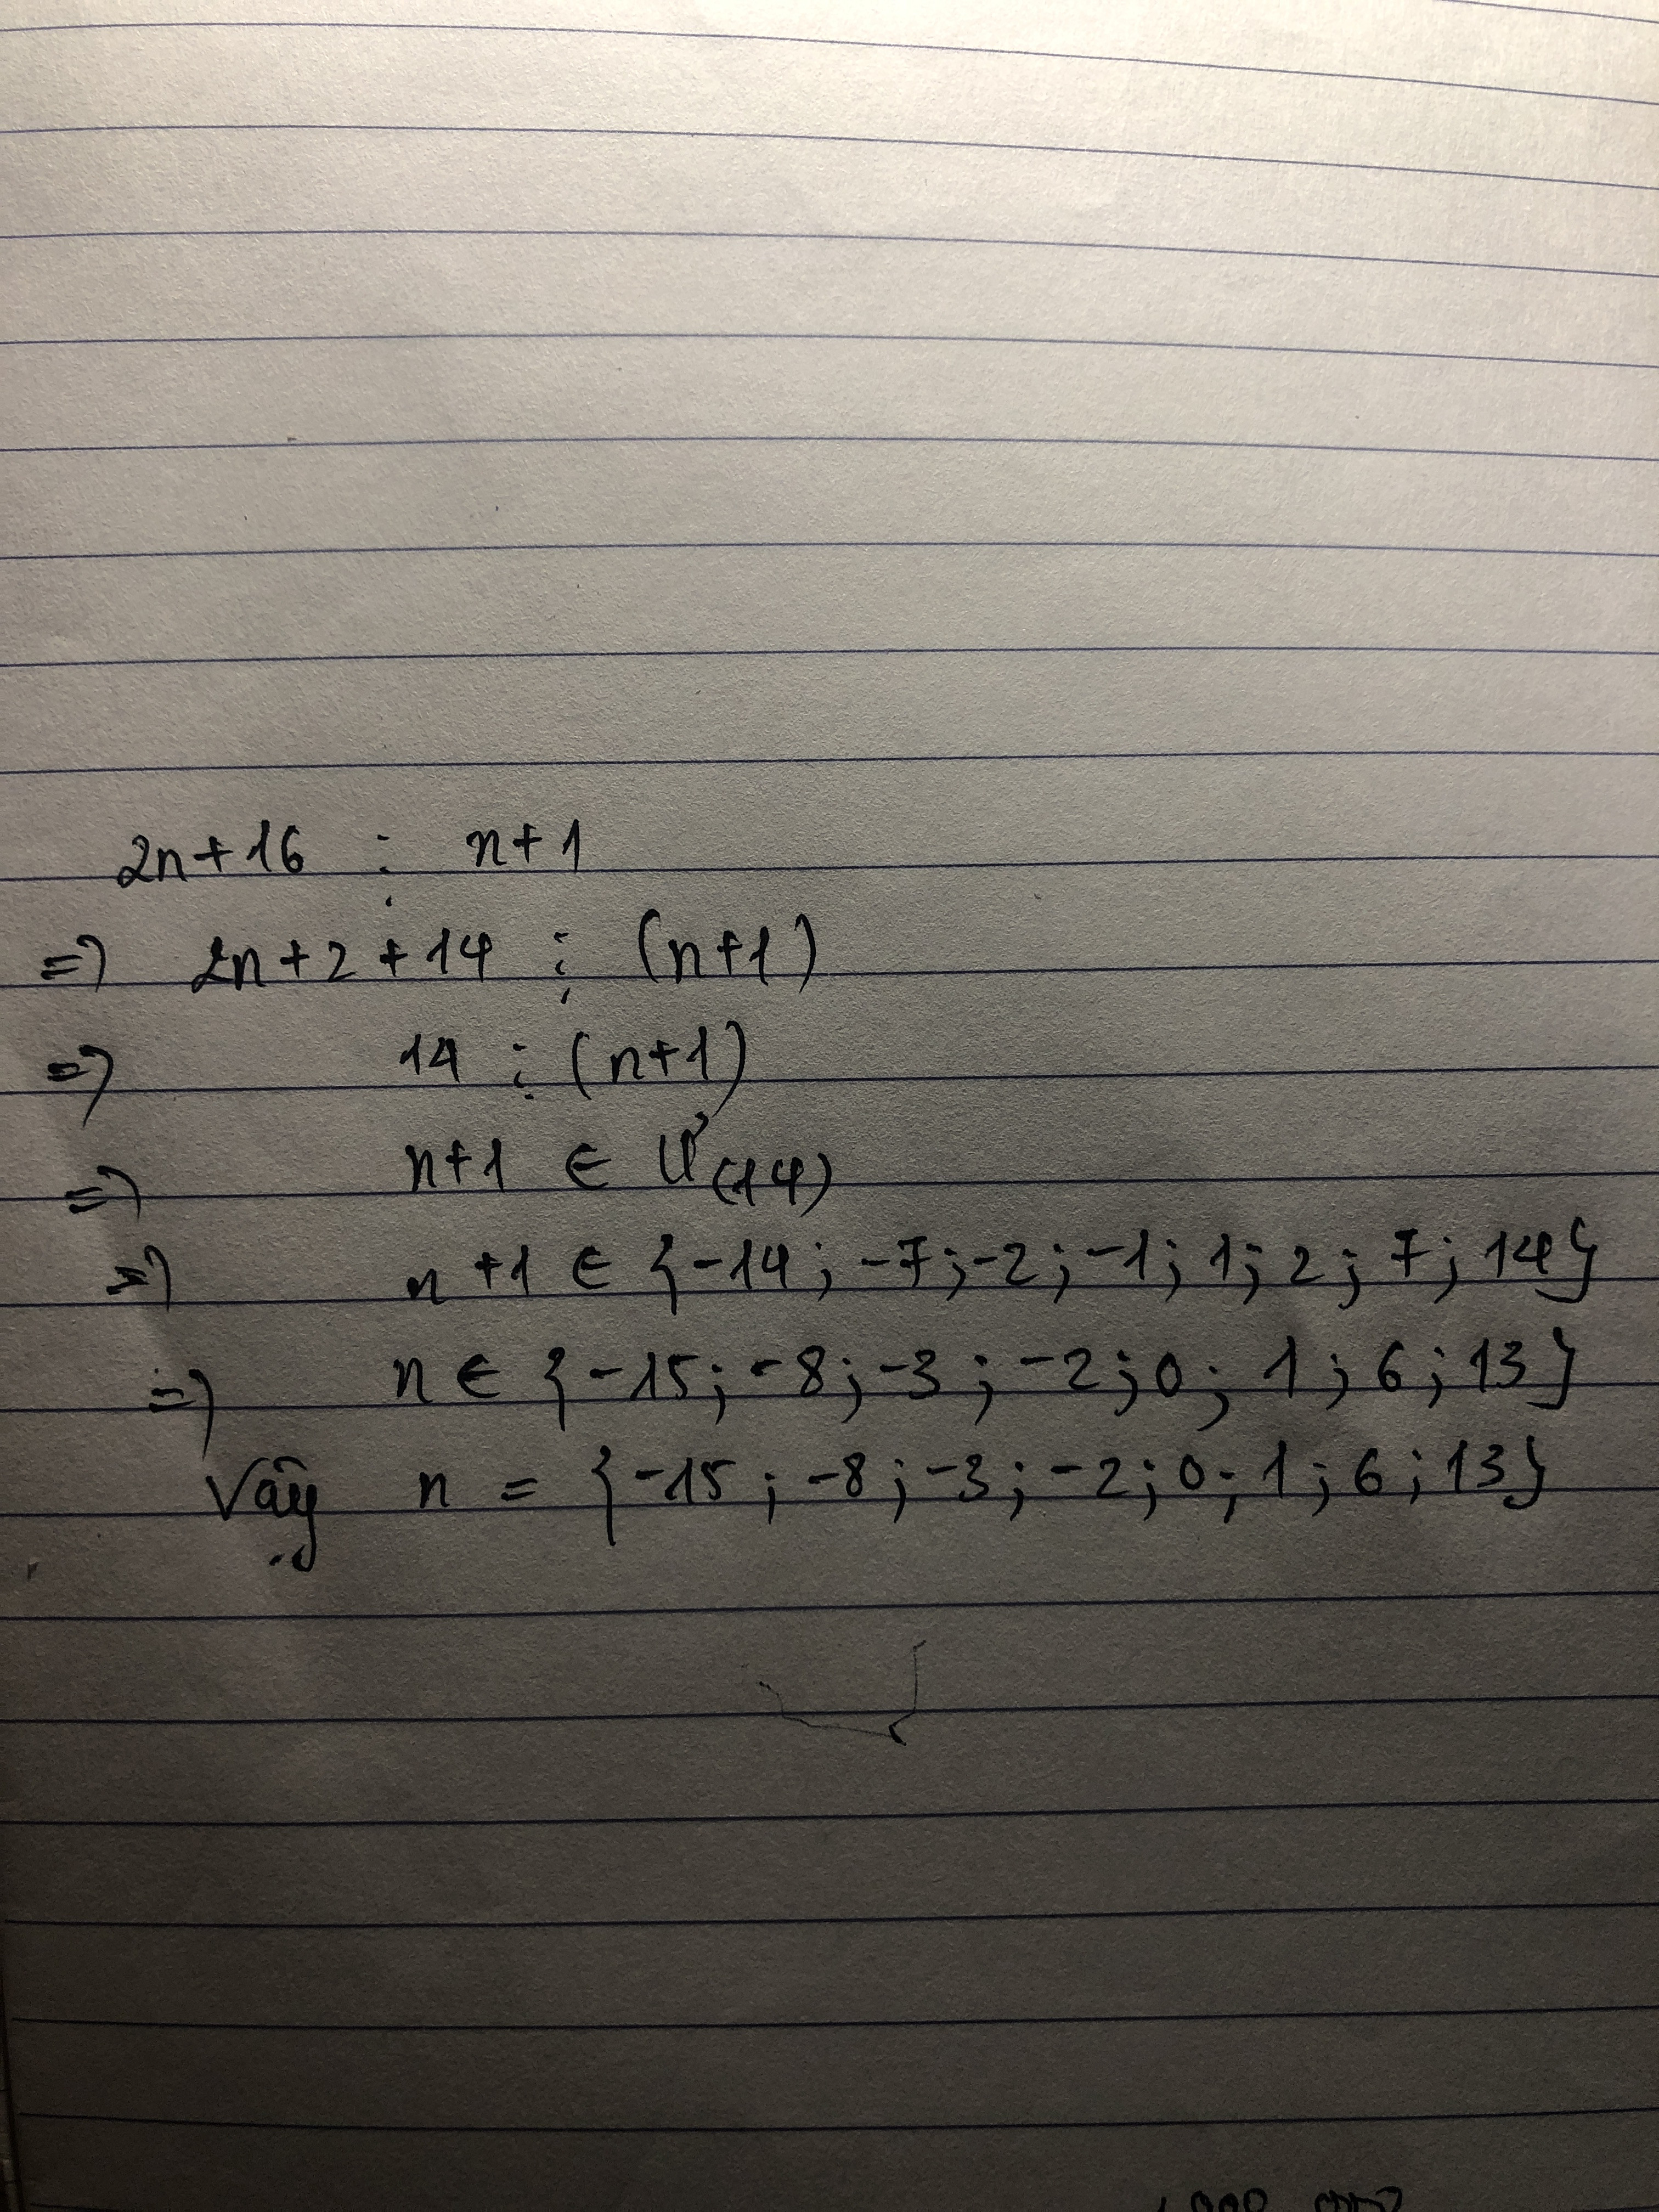 2n+16 ⋮ n+1
=> 2n+2+14 ⋮ (n+1)
=> 14 ⋮ (n+1)
=> n+1 ∈ Ư(14)
=> n+1 ∈ {-14; -7; -2; -1; 1; 2; 7; 14}
=> n ∈ {-15; -8; -3; -2; 0; 1; 6; 13}
Vậy n = {-15; -8; -3; -2; 0; 1; 6; 13}